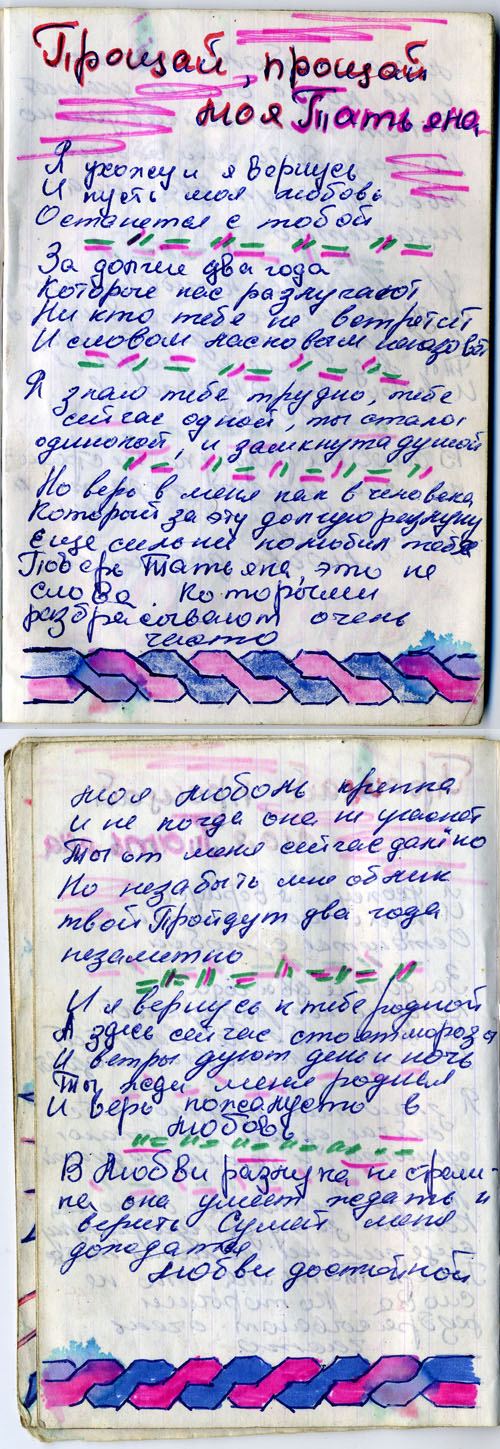 Прощай, прощай
моя Татьяна
Я ухожу и я вернусь
И пусть моя любовь
Останется с тобой
За долгие два года
Которые нас разлучают
Ни кто тебе не встретит
И словом ласковым
Я знаю тебе трудно, тебе
сейчас одной, ты стала
одинокой, и замкнута душой
Но верь в меня как в человека
Который за эту долгую разлуку
Еще сильне полюбил тебя
Поверь Татьяна, это не
слова. Которыми
разбрасывают очень
часто
Моя любовь крепка
И не когда она не угаснет
Ты от меня сейчас далеко
Но незабыть мне облик
твой Пройдут два года
незаметно
И я вернусь к тебе родной
А здесь сейчас стоят морозы
И ветры дуют день и ночь
Ты жди меня родная
И верь пожалуста в
любовь
В любви разлука не страш-
на она умеет ждать и
верить Сумей меня
дождаться
Любви достойной